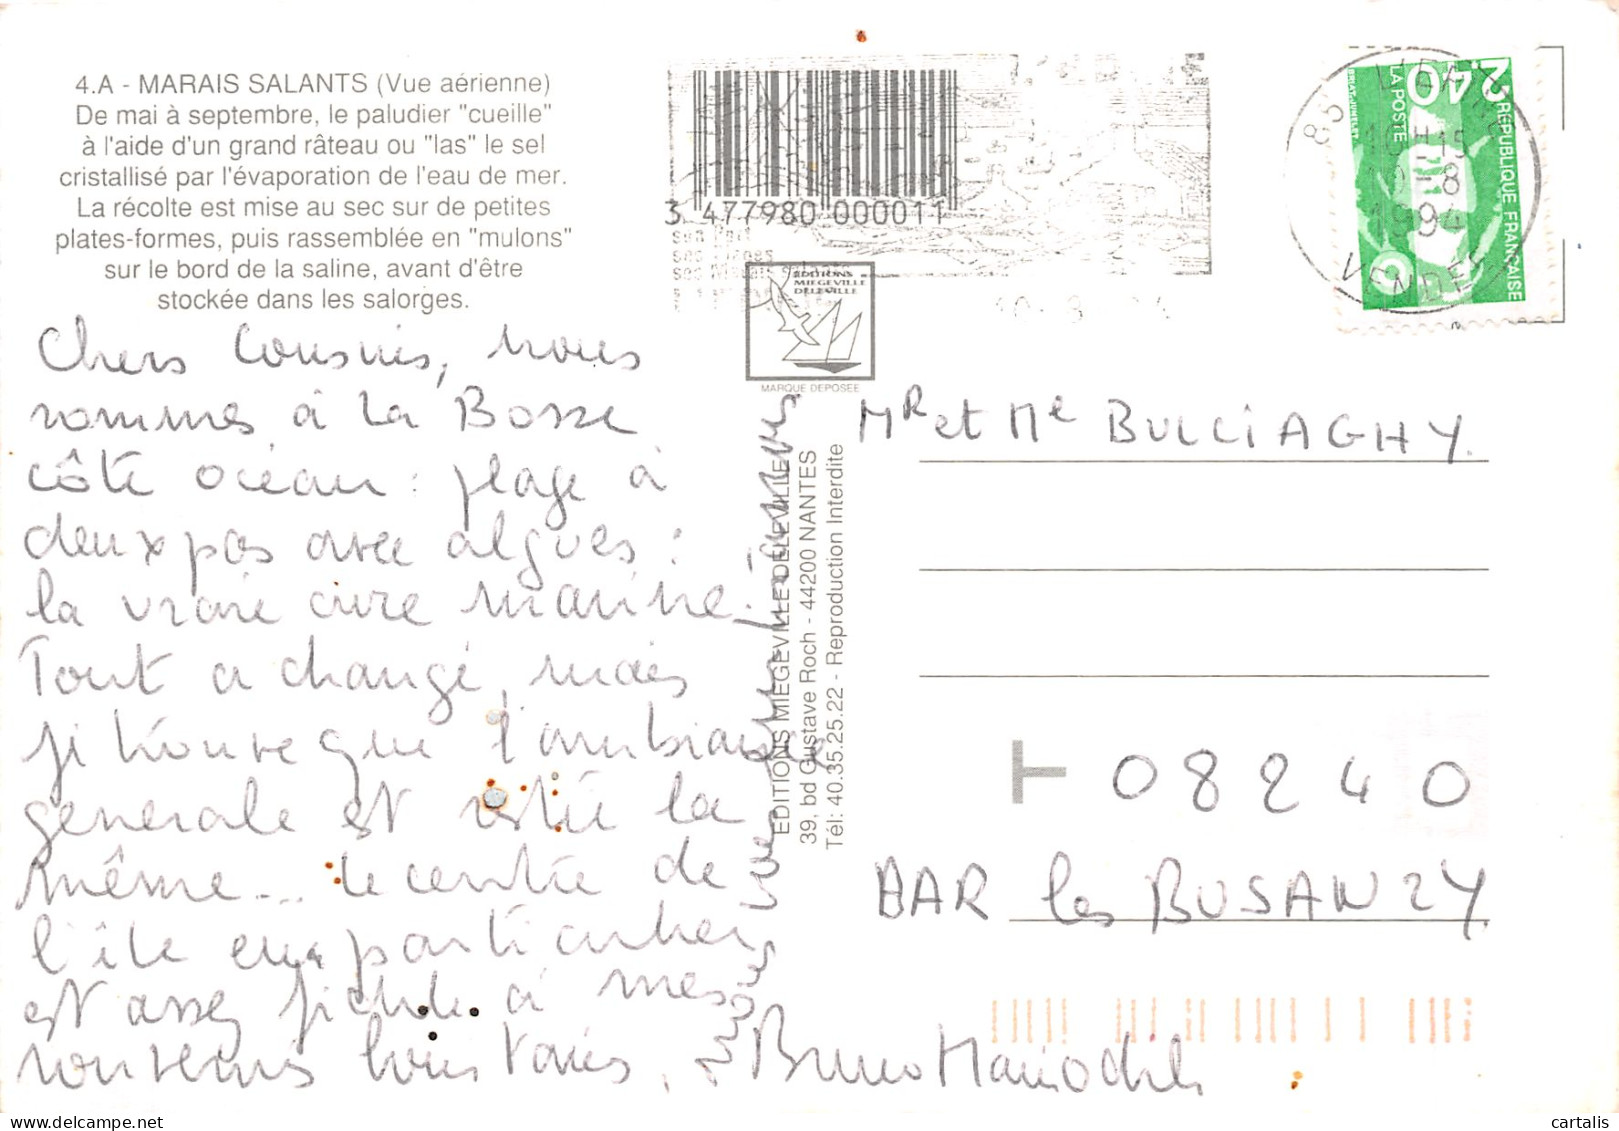 4.A - MARAIS SALANTS (Vue aérienne)
De mai à septembre, le paludier "cueille"
à l'aide d'un grand râteau ou "las" le sel
cristallisé par l'évaporation de l'eau de mer.
La récolte est mise au sec sur de petites
plates-formes, puis rassemblée en "mulons"
sur le bord de la saline, avant d'être
stockée dans les salorges.
Chers Cousins, nous
sommes à La Bosse
côté océan : plage à
deux pas avec algues :
la vraie cure marine.
Tout a changé, mais
je trouve que l'ambiance
generale est restée la
même... le centre de
l'île en particulier
est assez fidèle à mes
souvenirs lointains.
Bruno Marie Odile
3 477980 000011
EDITIONS
MIEGEVILLE
DELEVILLE
MARQUE DEPOSEE
EDITIONS MIEGEVILLE DELEVILLE
39, bd Gustave Roch - 44200 NANTES
Tél: 40.35.25.22 - Reproduction Interdite
2,40
RÉPUBLIQUE FRANÇAISE
LA POSTE
BRIAT-JUMELET
85
16H15
10-8
1994
VENDEE
Mr et Me BULCIAGHY
08240
BAR les BUSANZY
cartalis